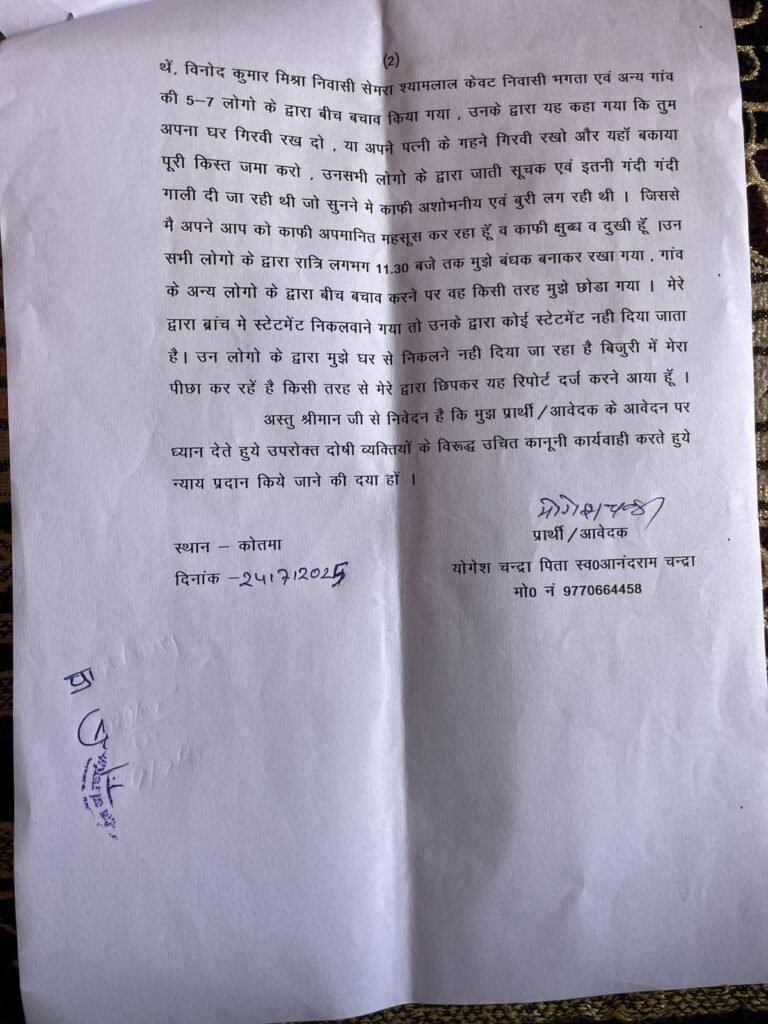 (2)
थें, विनोद कुमार मिश्रा निवासी सेमरा श्यामलाल केवट निवासी भगता एवं अन्य गांव
की 5-7 लोगो के द्वारा बीच बचाव किया गया , उनके द्वारा यह कहा गया कि तुम
अपना घर गिरवी रख दो , या अपने पत्नी के गहने गिरवी रखो और यहॉ बकाया
पूरी किस्त जमा करो , उनसभी लोगो के द्वारा जाती सूचक एवं इतनी गंदी गंदी
गाली दी जा रही थी जो सुनने मे काफी अशोभनीय एवं बुरी लग रही थी । जिससे
मै अपने आप को काफी अपमानित महसूस कर रहा हूॅ व काफी क्षुब्ध व दुखी हूॅ ।उन
सभी लोगो के द्वारा रात्रि लगभग 11.30 बजे तक मुझे बंधक बनाकर रखा गया , गांव
के अन्य लोगो के द्वारा बीच बचाव करने पर वह किसी तरह मुझे छोडा गया । मेरे
द्वारा ब्रांच मे स्टेटमेंट निकलवाने गया तो उनके द्वारा कोई स्टेटमेंट नही दिया जाता
है। उन लोगो के द्वारा मुझे घर से निकलने नही दिया जा रहा है बिजुरी में मेरा
पीछा कर रहें है किसी तरह से मेरे द्वारा छिपकर यह रिपोर्ट दर्ज करने आया हूॅ ।
अस्तु श्रीमान जी से निवेदन है कि मुझ प्रार्थी/आवेदक के आवेदन पर
ध्यान देते हुये उपरोक्त दोषी व्यक्तियों के विरूद्ध उचित कानूनी कार्यवाही करते हुये
न्याय प्रदान किये जाने की दया हों ।
स्थान – कोतमा
दिनांक –24/7/2025
योगेश चन्द्रा
प्रार्थी/आवेदक
योगेश चन्द्रा पिता स्व0आनंदराम चन्द्रा
मो0 नं 9770664458